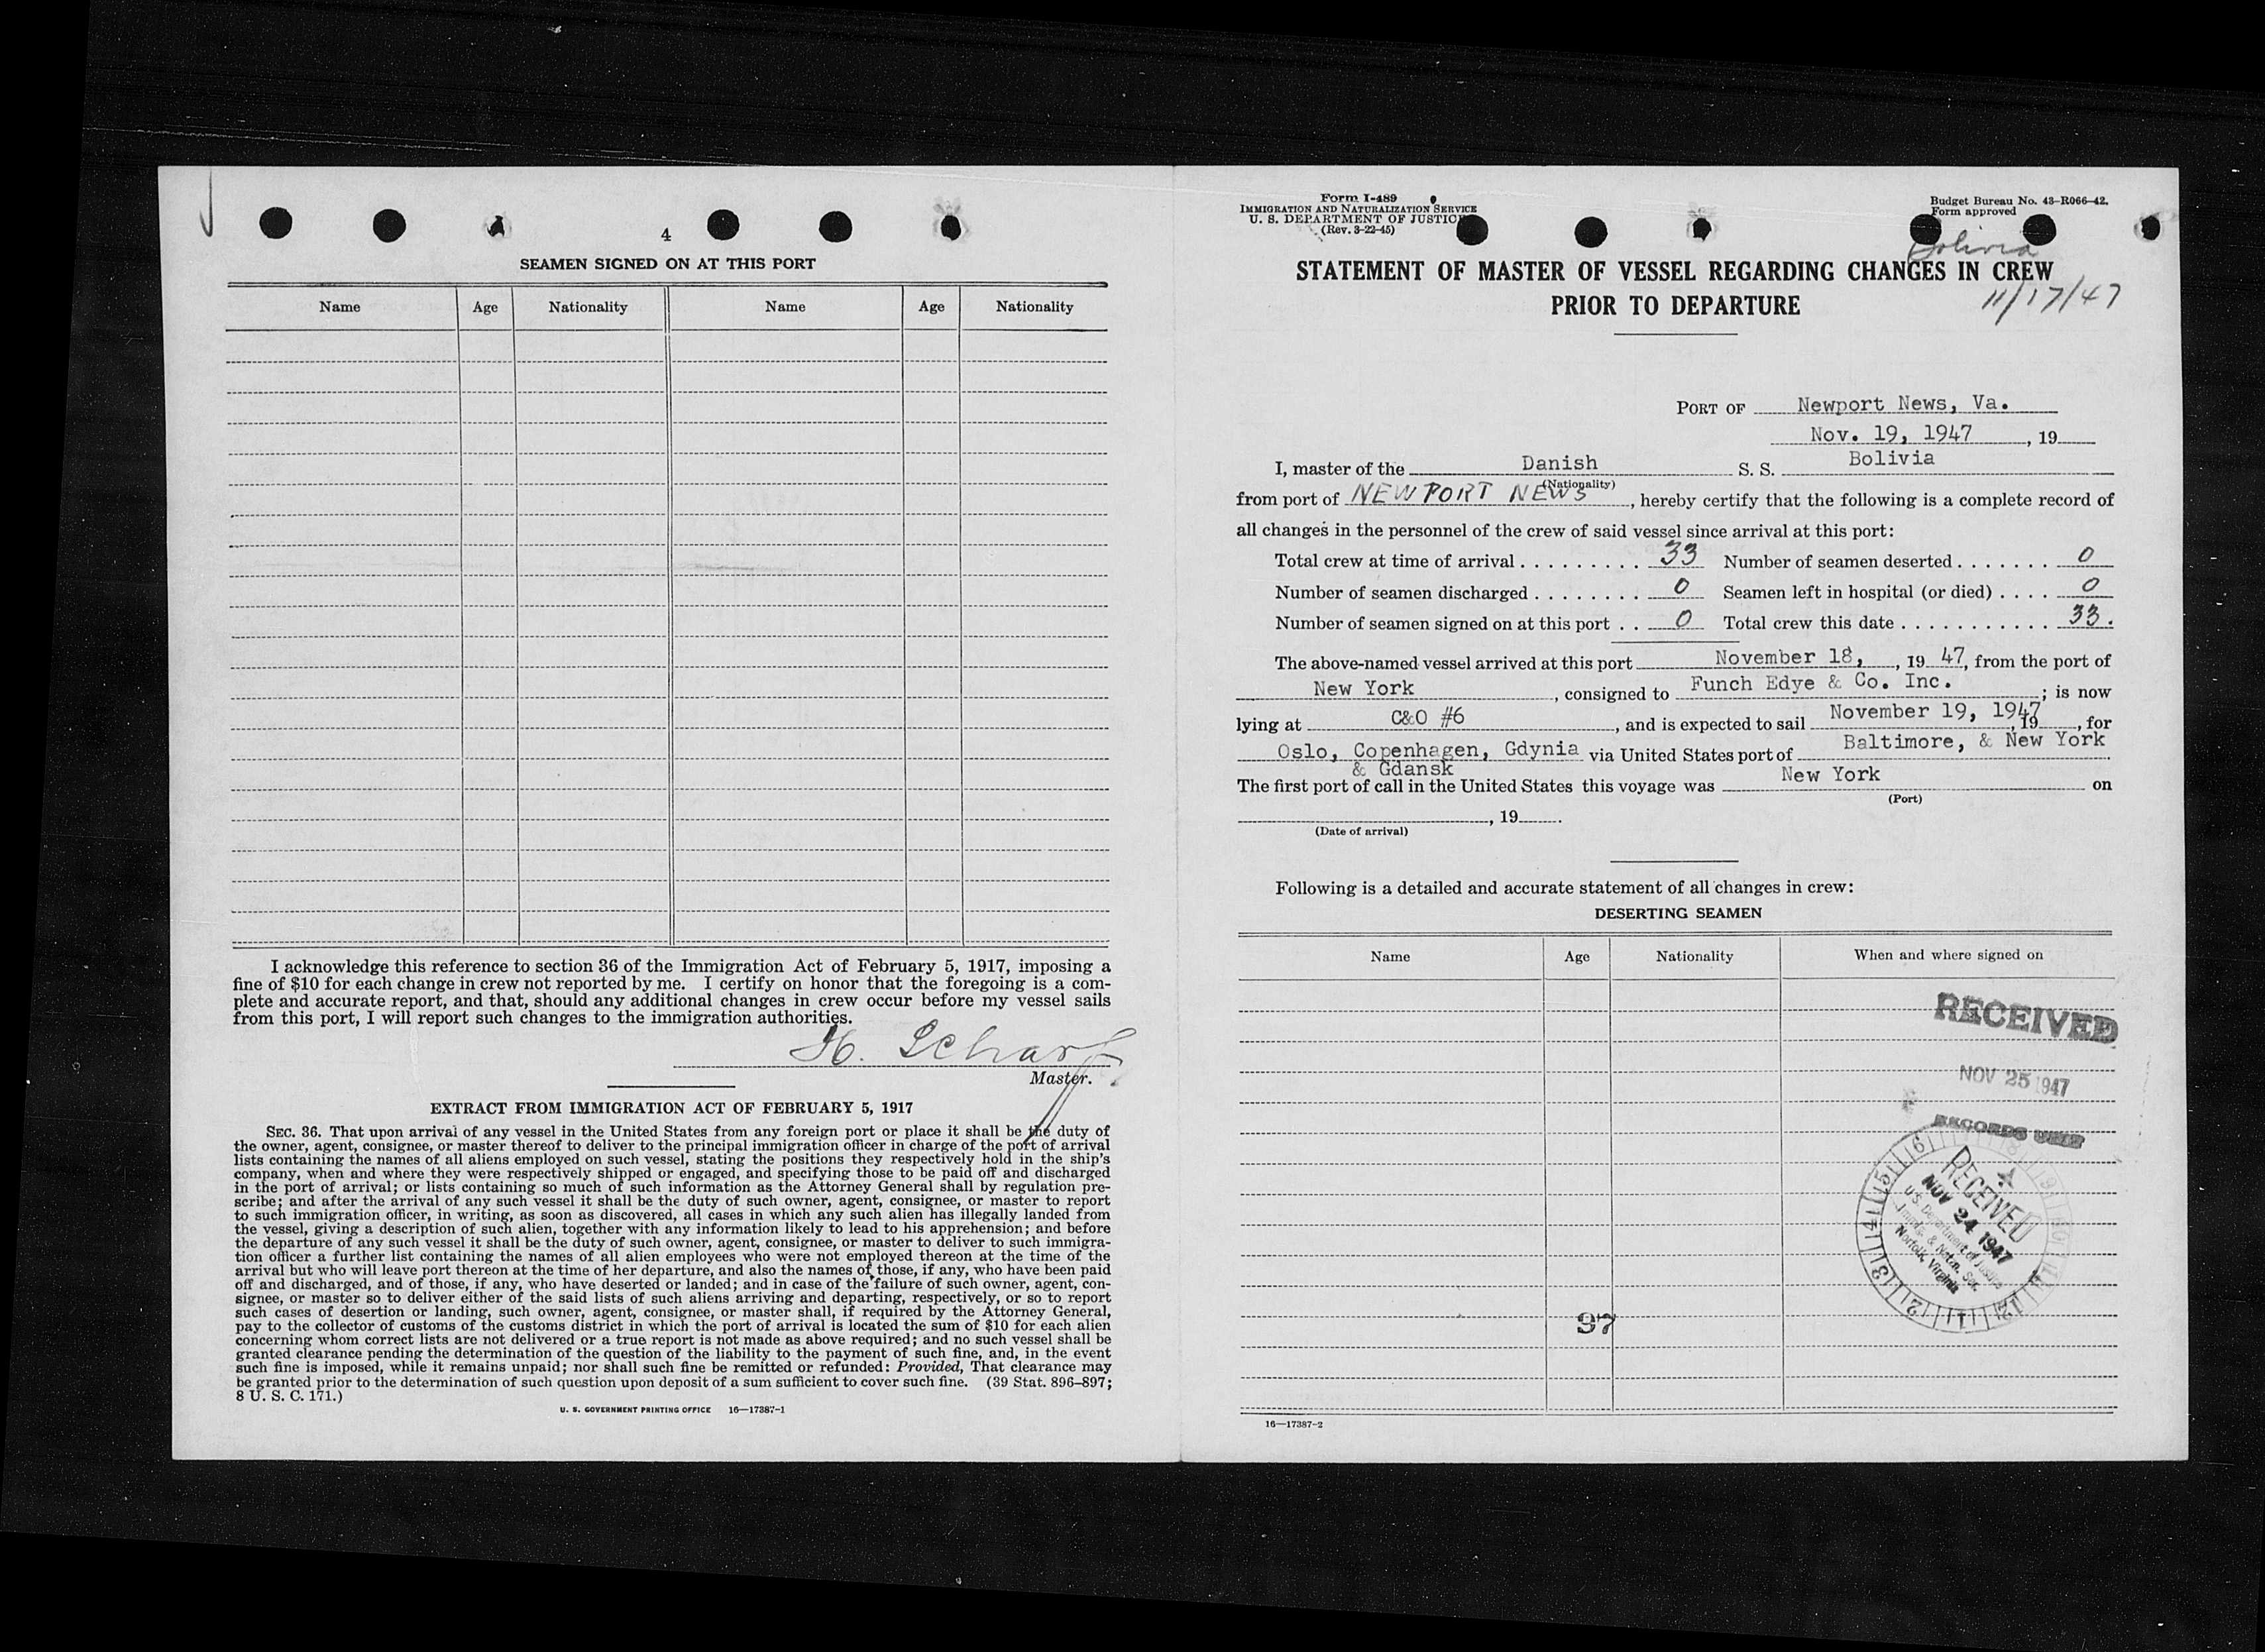 4
SEAMEN SIGNED ON AT THIS PORT
Name Age Nationality Name Age Nationality
I acknowledge this reference to section 36 of the Immigration Act of February 5, 1917, imposing a
fine of $10 for each change in crew not reported by me. I certify on honor that the foregoing is a com-
plete and accurate report, and that, should any additional changes in crew occur before my vessel sails
from this port, I will report such changes to the immigration authorities.
H. Scharf
Master.
EXTRACT FROM IMMIGRATION ACT OF FEBRUARY 5, 1917
SEC. 36. That upon arrival of any vessel in the United States from any foreign port or place it shall be the duty of
the owner, agent, consignee, or master thereof to deliver to the principal immigration officer in charge of the port of arrival
lists containing the names of all aliens employed on such vessel, stating the positions they respectively hold in the ship's
company, when and where they were respectively shipped or engaged, and specifying those to be paid off and discharged
in the port of arrival; or lists containing so much of such information as the Attorney General shall by regulation pre-
scribe; and after the arrival of any such vessel it shall be the duty of such owner, agent, consignee, or master to report
to such immigration officer, in writing, as soon as discovered, all cases in which any such alien has illegally landed from
the vessel, giving a description of such alien, together with any information likely to lead to his apprehension; and before
the departure of any such vessel it shall be the duty of such owner, agent, consignee, or master to deliver to such immigra-
tion officer a further list containing the names of all alien employees who were not employed thereon at the time of the
arrival but who will leave port thereon at the time of her departure, and also the names of those, if any, who have been paid
off and discharged, and of those, if any, who have deserted or landed; and in case of the failure of such owner, agent, con-
signee, or master so to deliver either of the said lists of such aliens arriving and departing, respectively, or so to report
such cases of desertion or landing, such owner, agent, consignee, or master shall, if required by the Attorney General,
pay to the collector of customs of the customs district in which the port of arrival is located the sum of $10 for each alien
concerning whom correct lists are not delivered or a true report is not made as above required; and no such vessel shall be
granted clearance pending the determination of the question of the liability to the payment of such fine, and, in the event
such fine is imposed, while it remains unpaid; nor shall such fine be remitted or refunded: Provided, That clearance may
be granted prior to the determination of such question upon deposit of a sum sufficient to cover such fine. (39 Stat. 896–897;
8 U. S. C. 171.)
U. S. GOVERNMENT PRINTING OFFICE 16—17387-1
Form I-489
IMMIGRATION AND NATURALIZATION SERVICE
U. S. DEPARTMENT OF JUSTICE
(Rev. 3-22-45)
Budget Bureau No. 43-R066-42.
Form approved
Bolivia
STATEMENT OF MASTER OF VESSEL REGARDING CHANGES IN CREW
PRIOR TO DEPARTURE
11/17/47
PORT OF Newport News, Va.
Nov. 19, 1947 , 19
I, master of the Danish S. S. Bolivia
(Nationality)
from port of NEWPORT NEWS , hereby certify that the following is a complete record of
all changes in the personnel of the crew of said vessel since arrival at this port:
Total crew at time of arrival . . . . . . . . . 33 Number of seamen deserted . . . . . . . 0
Number of seamen discharged . . . . . . . . 0 Seamen left in hospital (or died) . . . . 0
Number of seamen signed on at this port . . 0 Total crew this date . . . . . . . . . . . 33.
The above-named vessel arrived at this port November 18, , 19 47, from the port of
New York , consigned to Funch Edye & Co. Inc. ; is now
lying at C&O #6 , and is expected to sail November 19, 1947 19 , for
Oslo, Copenhagen, Gdynia via United States port of Baltimore, & New York
& Gdansk
The first port of call in the United States this voyage was New York on
(Port)
, 19 .
(Date of arrival)
Following is a detailed and accurate statement of all changes in crew:
DESERTING SEAMEN
Name Age Nationality When and where signed on
RECEIVED
NOV 25 1947
RECORDS UNIT
RECEIVED
NOV 24 1947
U.S. Department of Justice
Immig. & Natzn. Ser.
Norfolk, Virginia
97
16—17387-2